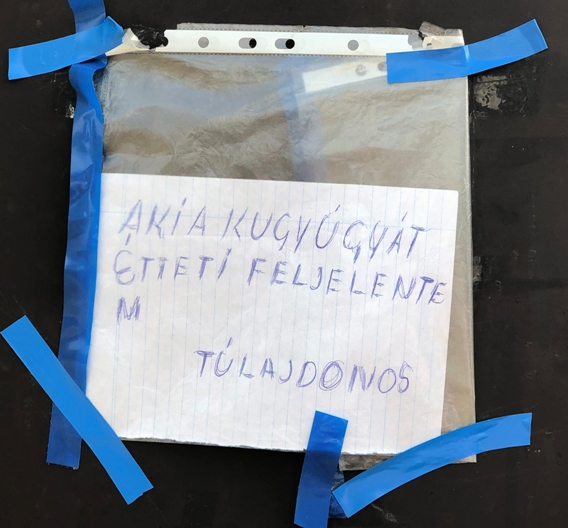 AKÍA KUGYÚGYÁT
ÉTTETÍ FELJELENTE
M
TÚLAJDONOS